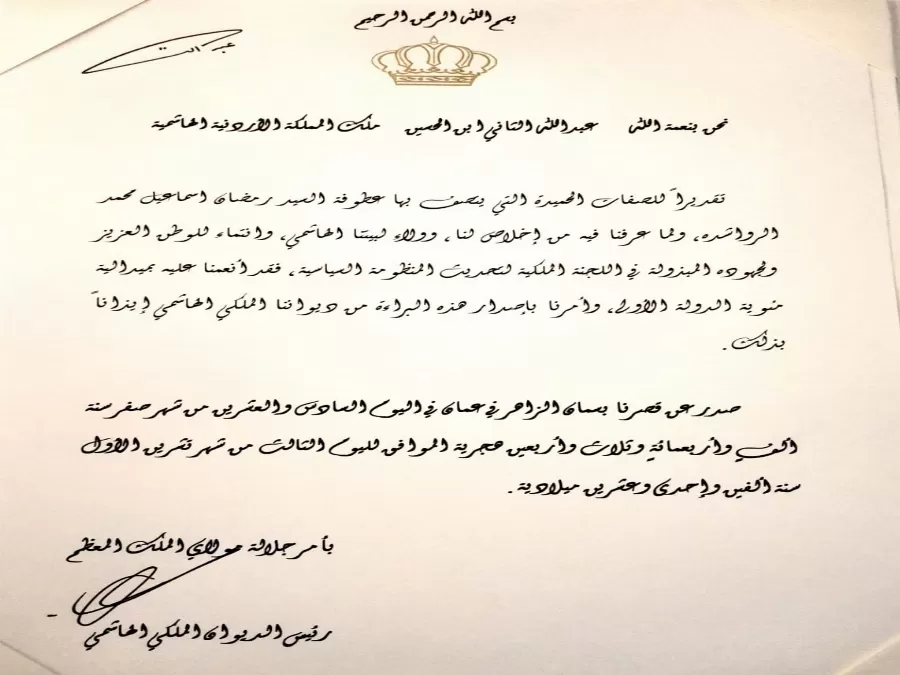 بسم الله الرحمن الرحيم
عبدالله
نحن بنعمة الله عبدالله الثاني ابن الحسين ملك المملكة الأردنية الهاشمية
تقديراً للصفات الحميدة التي يتصف بها عطوفة السيد رمضان اسماعيل محمد
الرواشده، ولما عرفنا فيه من إخلاص لنا، وولاءٍ لبيتنا الهاشمي، وانتماء للوطن العزيز
ولجهوده المبذولة في اللجنة الملكية لتحديث المنظومة السياسية، فقد أنعمنا عليه بميدالية
مئوية الدولة الأولى، وأمرنا بإصدار هذه البراءة من ديواننا الملكي الهاشمي إيذاناً
بذلك.
صدر عن قصرنا بسمان الزاهر في عمان في اليوم السادس والعشرين من شهر صفر سنة
ألفٍ وأربعمائةٍ وثلاث وأربعين هجرية الموافق لليوم الثالث من شهر تشرين الأول
سنة ألفين وإحدى وعشرين ميلادية.
بأمر جلالة مولاي الملك المعظم
رئيس الديوان الملكي الهاشمي